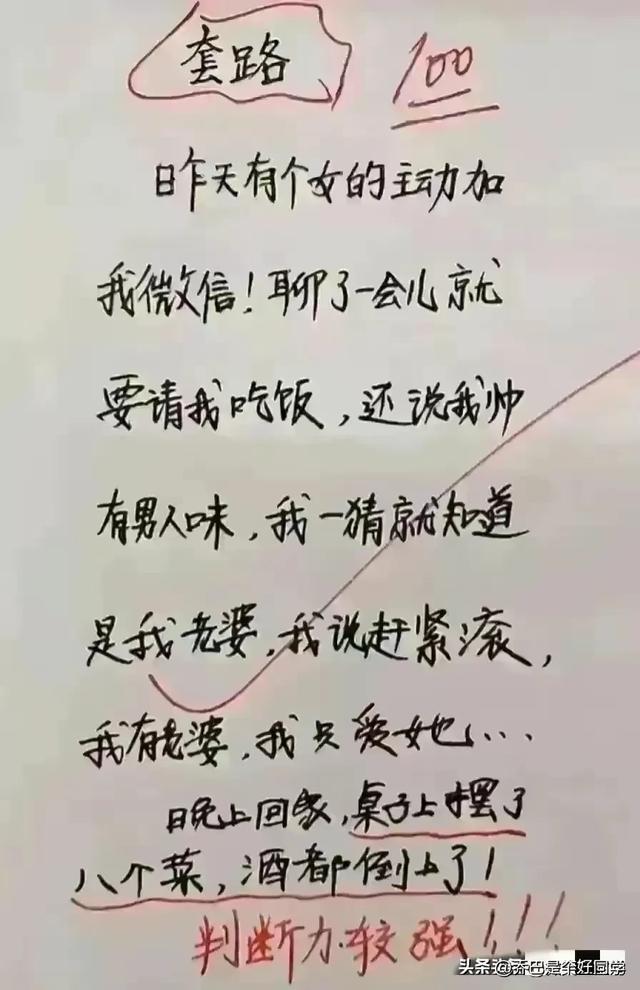 套路
100
昨天有个女的主动加
我微信！聊了一会儿就
要请我吃饭，还说我帅
有男人味，我一猜就知道
是我老婆，我说赶紧滚，
我有老婆，我只爱她...
晚上回家，桌子上摆了
八个菜，酒都倒上了！
判断力较强！！！
头条 @乔巴是个好同学